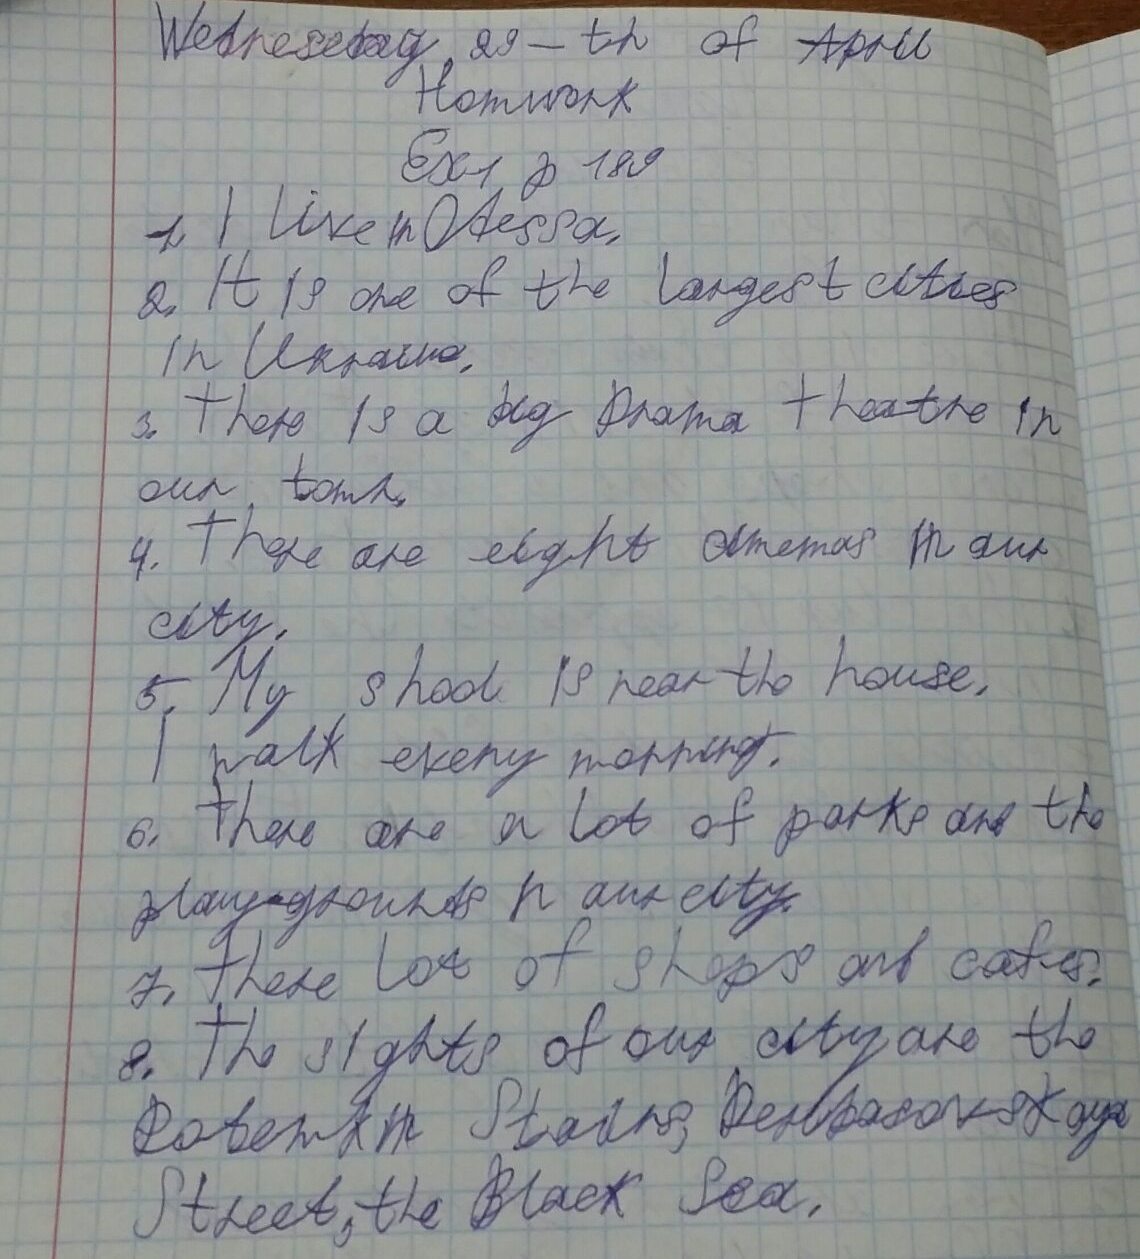 Wednesday 29-th of April
Homwork
Ex 1 p 189
1. I live in Odessa.
2. It is one of the largest cities
in Ukraine.
3. There is a big Drama theatre in
our town.
4. There are eight cinemas in our
city.
5. My shool is near the house.
I walk every morning.
6. There are a lot of parks and the
play-grounds in our city.
7. There lot of shops and cafes.
8. The sights of our city are the
Potemkin Stairs, Deribasovskaya
Street, the Black Sea.